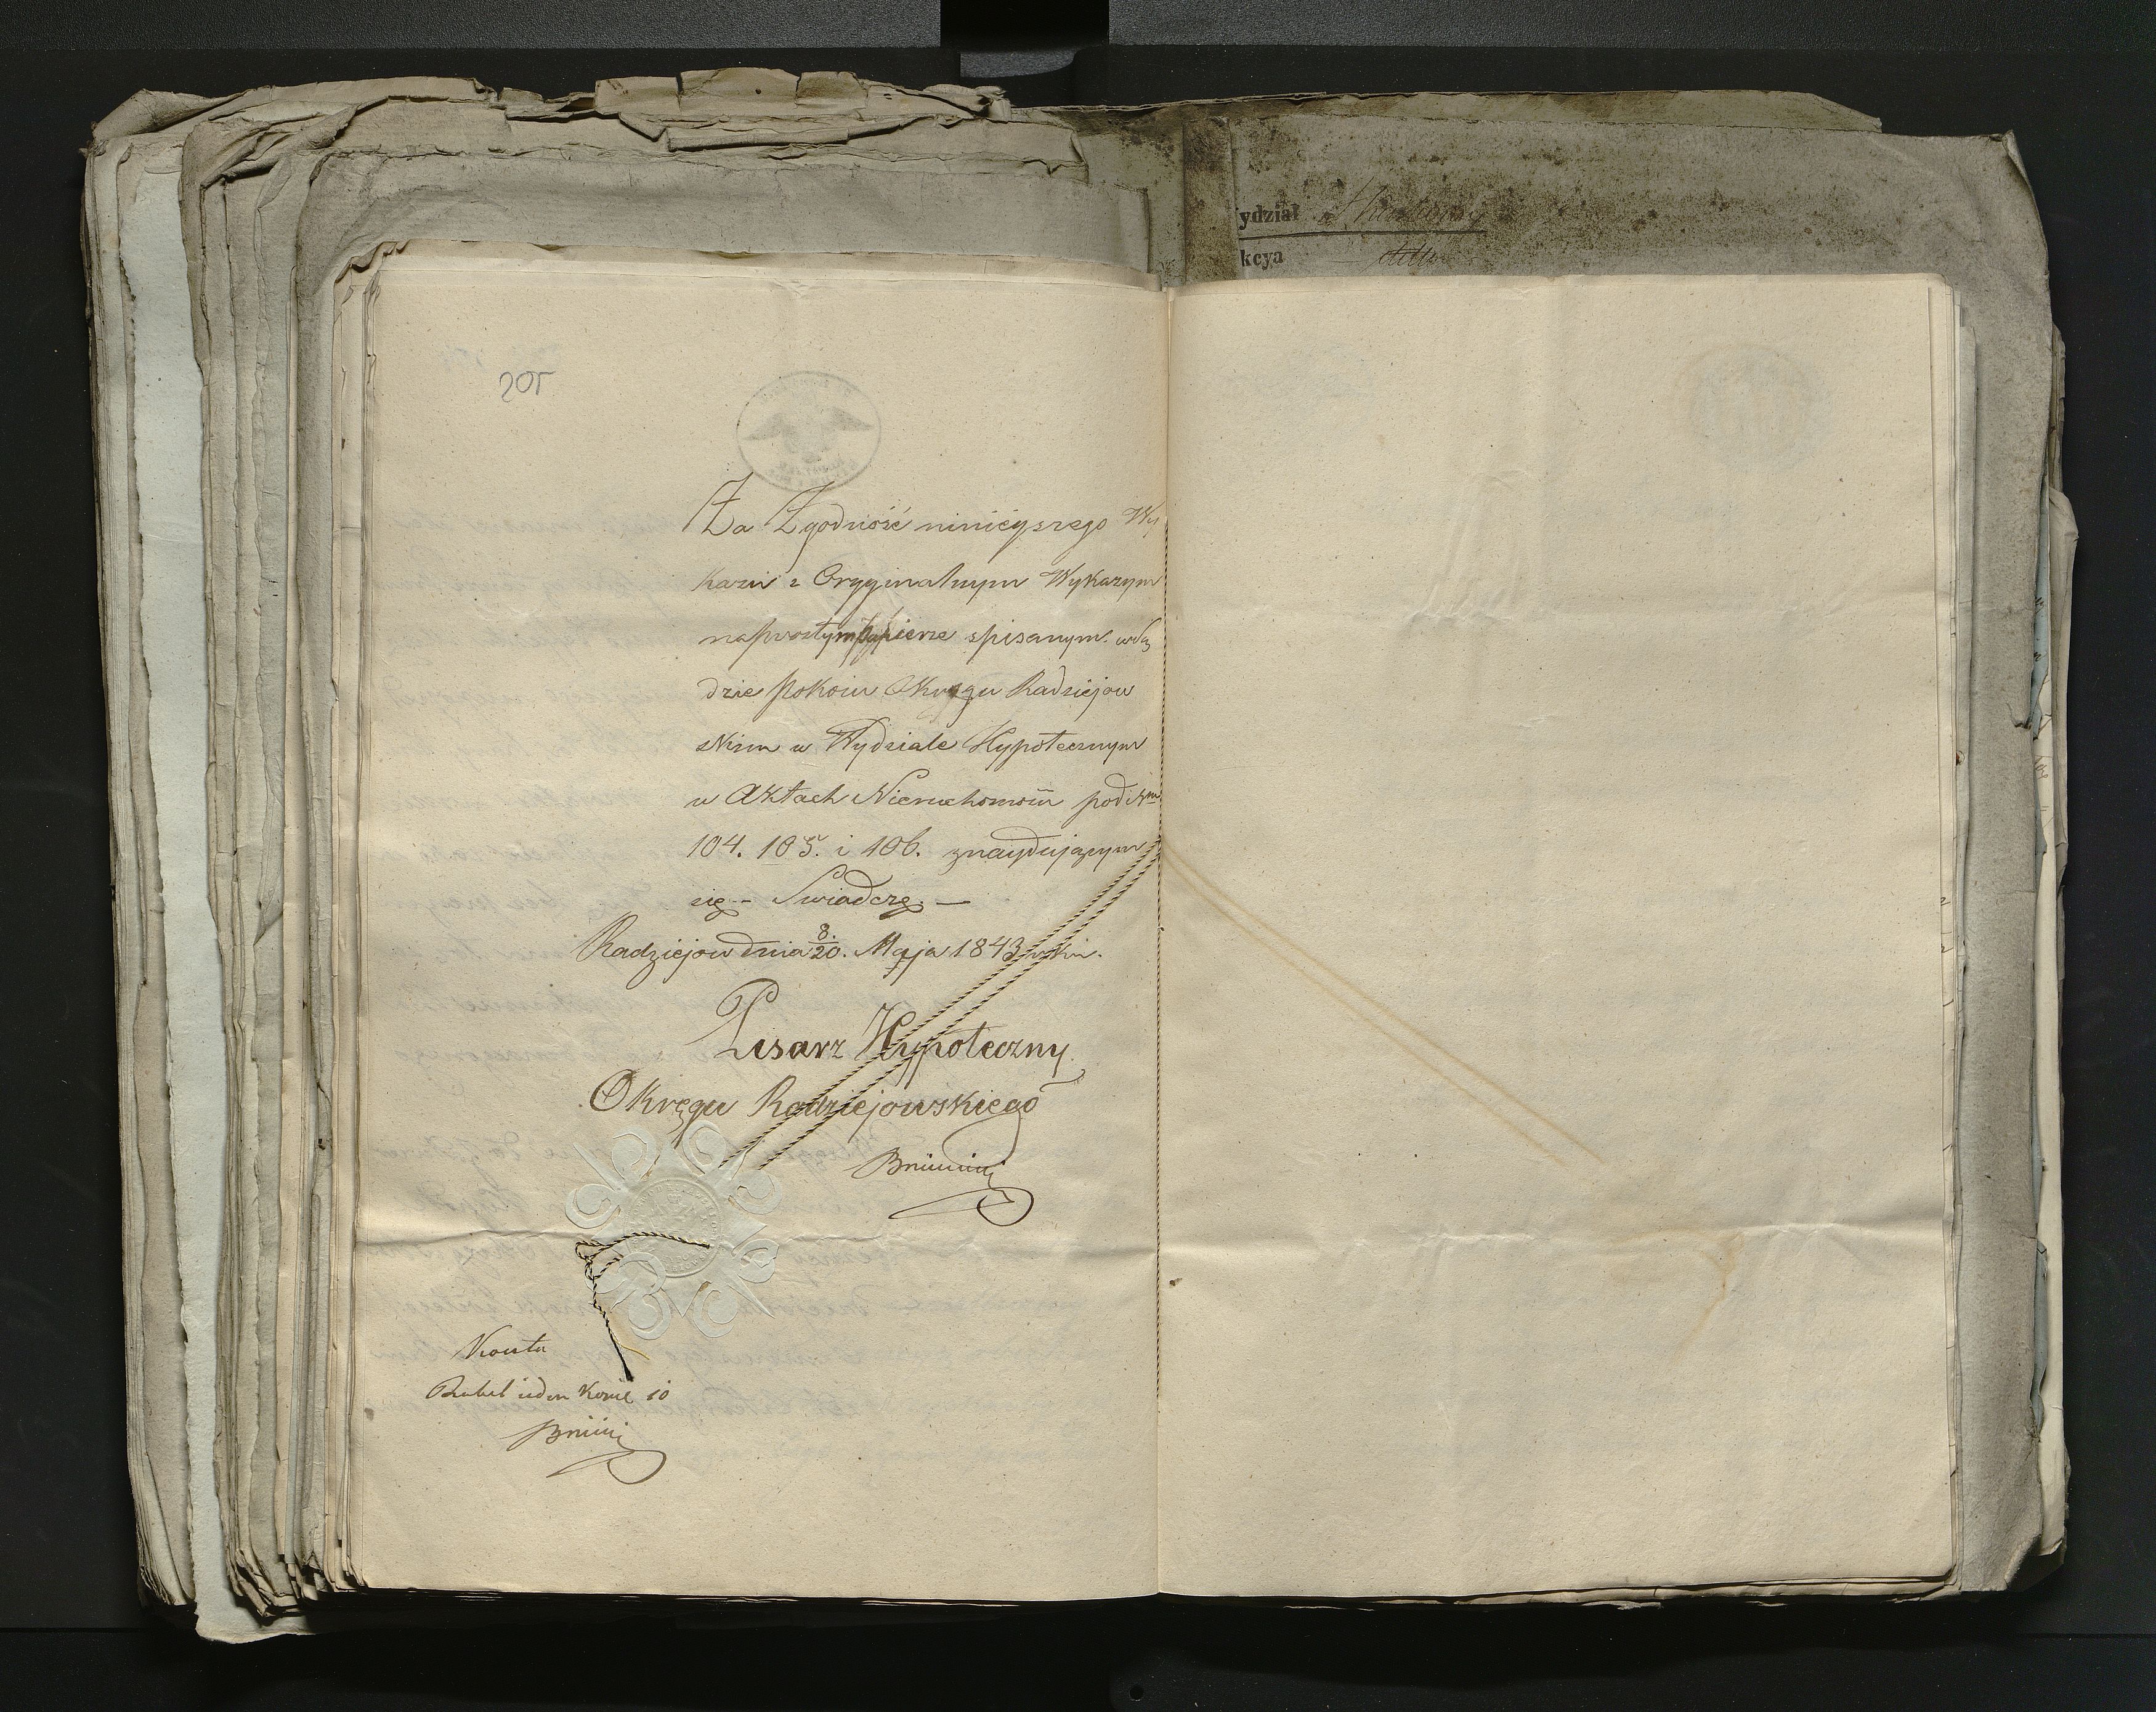 ydział
kcya
205
Za Zgodność ninieyszego Wy
kazu z Oryginalnym Wykazym
na prostym papierze spisanym. w Są
dzie Pokoiu Okręgu Radziejow
skim w Wydziale Hypotecznym
w Aktach Nieruchomości pod Nm
104. 105. i 106. znaydującym
się – Swiadczę. —
Radziejow dnia 8/20. Maja 1843 roku.
Pisarz Hypoteczny
Okręgu Radziejowskiego
Kosztu
Rubel ieden Kopie 10